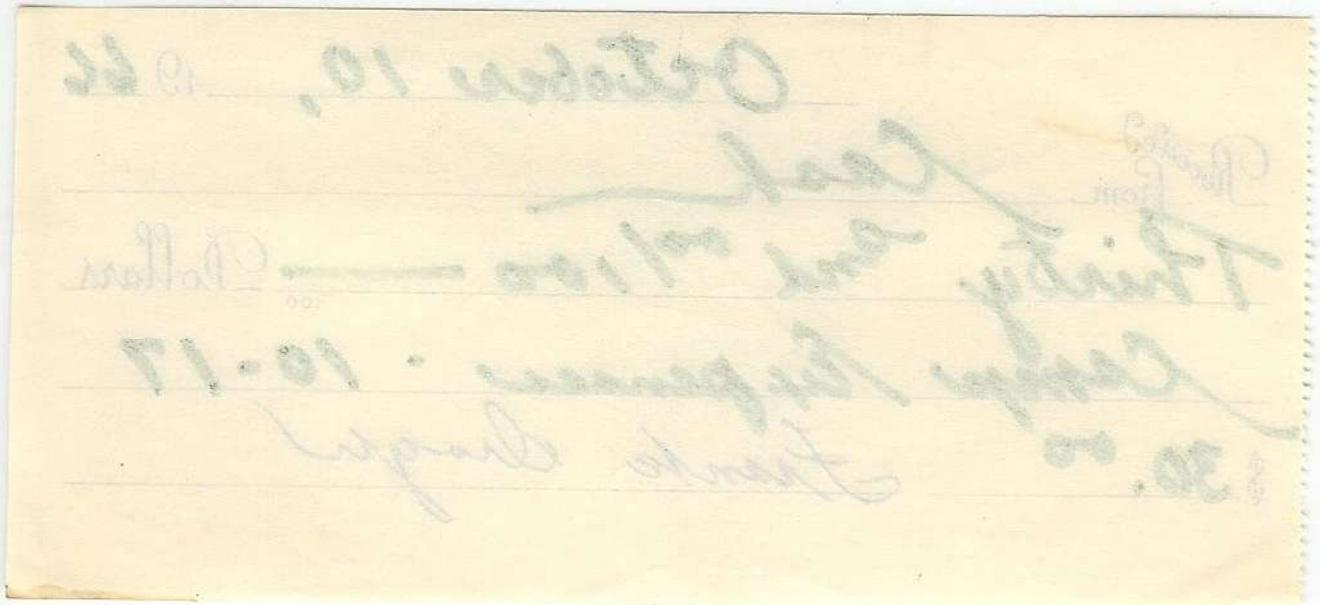 October 10, 1966
Received
From Cash
Thirty and 00/100 Dollars
100
Camp Expenses - 10-17
$ 30.00 Frank